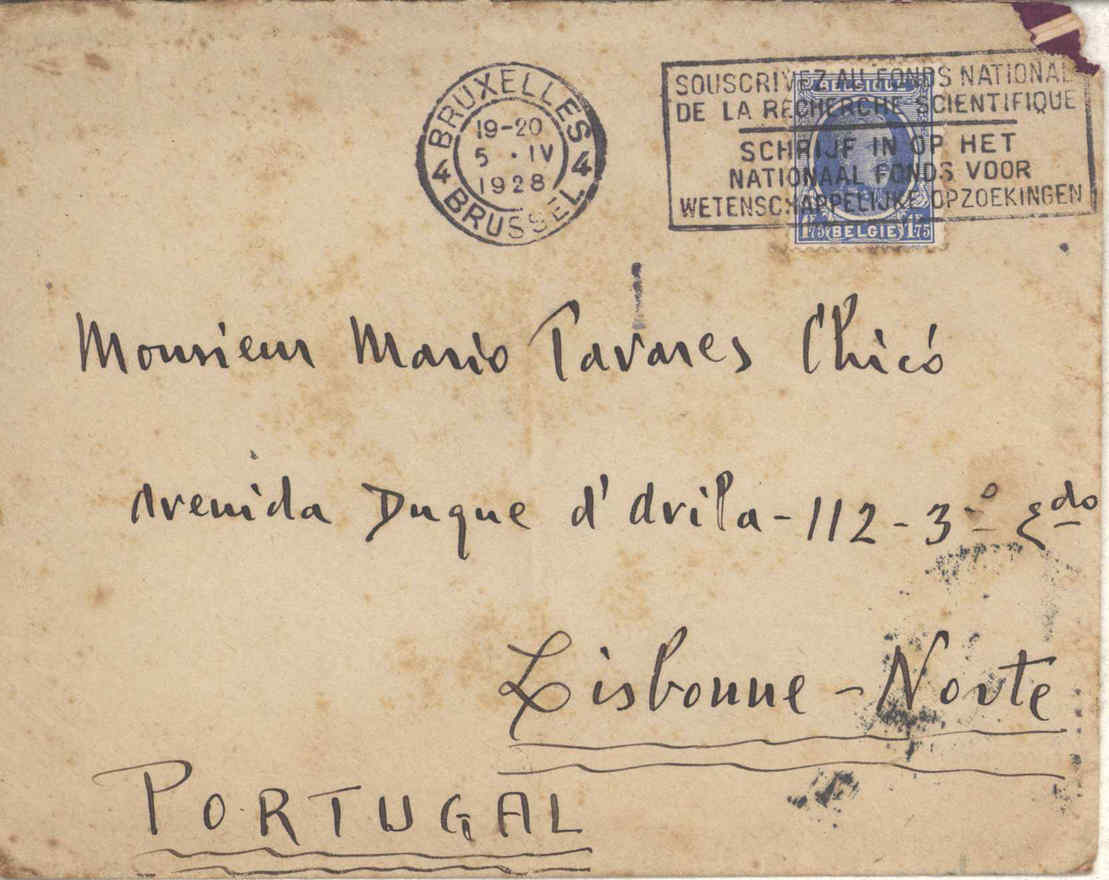 BRUXELLES
4 19-20 4
5 . IV
1928
BRUSSEL
SOUSCRIVEZ AU FONDS NATIONAL
DE LA RECHERCHE SCIENTIFIQUE
SCHRIJF IN OP HET
NATIONAAL FONDS VOOR
WETENSCHAPPELIJKE OPZOEKINGEN
BELGIQUE
1F75 BELGIE 1F75
Monsieur Mario Tavares Chicó
Avenida Duque d'Avila - 112 - 3º Edo
Lisbonne - Norte
PORTUGAL